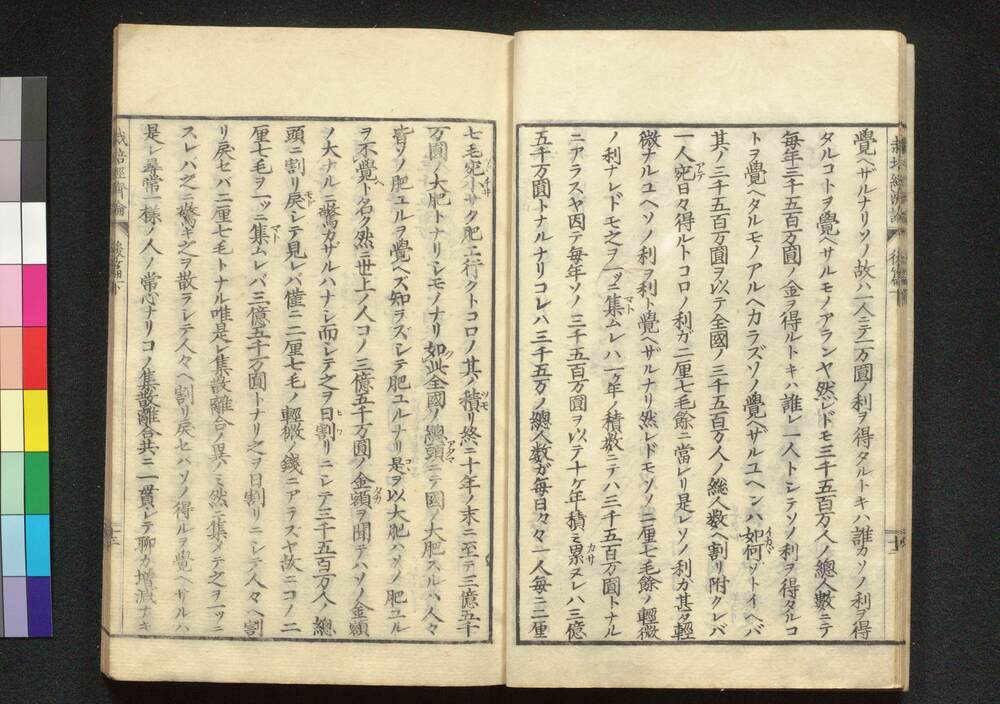 覺ヘザルナリソノ故ハ一人ニテ一万圓ノ利ヲ得タルトキハ誰カソノ利ヲ得
タルコトヲ覺ヘサルモノアランヤ然レドモ三千五百万人ノ總人數ニテ
毎年三千五百万圓ノ金ヲ得ルトキハ誰レ一人トシテソノ利ヲ得タルコ
トヲ覺ヘタルモノアルヘカラズソノ覺ヘザルユヘンハ如何ゾトイヘバ
其ノ三千五百万圓ヲ以テ全國ノ三千五百万人ノ総人數ヘ割リ附クレバ
一人宛日々得ルトコロノ利カ二厘七毛餘ニ當レリ是レソノ利カ其タ輕
微ナルユヘソノ利ヲ利ト覺ヘザルナリ然レドモソノ二厘七毛餘ノ輕微
ノ利ナレドモ之ヲ一ッニ集ムレハ一ケ年ノ積數ニテハ三千五百万圓トナル
ニアラスヤ因テ毎年ソノ三千五百万圓ヲ以テ十ケ年積ミ累ヌレハ三億
五千万圓トナルナリコレハ三千五百万ノ總人数ガ毎日々々一人毎ニ二厘
栽培經濟論
後篇
七毛宛小サク肥ヱ行クトコロノ其ノ積リ終ニ十年ノ末ニ至テ三億五千
万圓ノ大肥トナリシモノナリ如此全國ノ總頭ニテ國ノ大肥スルハ人々
皆ソノ肥ユルヲ覺ヘズ知ラズシテ肥ユルナリ是ヲ以大肥ハソノ肥ユル
ヲ不覺ト名ク然ニ世上ノ人コノ三億五千万圓ノ金額ヲ聞テハソノ金額
ノ大ナルニ驚カザルハナシ而シテ之ヲ日割リニシテ三千五百万人ノ總
頭ニ割リ戻シテ見レバ僅ニ二厘七毛ノ輕微ノ錢ニアラスヤ故ニコノ二
厘七毛ヲ一ッニ集ムレバ三億五千万圓トナリ之ヲ日割リニシテ人々ヘ割
リ戻セバ二厘七毛トナル唯是レ集散離合ノ異ノミ然ニ集メテ之ヲ一ッニ
スレハ之ニ驚キ之ヲ散ラシテ人々ヘ割リ戻セハソノ得ルヲ覺ヘサルハ
是レ尋常一様ノ人ノ常心ナリコノ集散離合共ニ一貫シテ聊カ増減ナキ
栽培經濟論
後篇